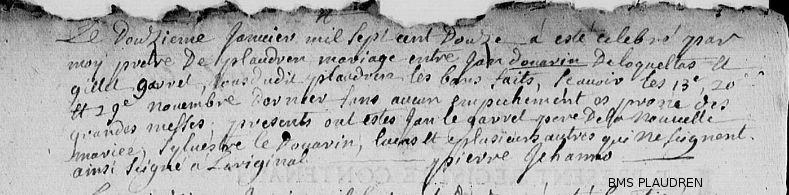 Le Douzieme Janvier mil sept cent Douze a esté celebré par
moy pretre De plaudren mariage entre Jan douarin De loqueltas et
gillet garret, tous dudit plaudren les bans faits, scauoir les 13e, 20
et 29e novembre dernier sans aucun empechement es prone des
grandes messes, presents ont estes Jan le garret pere De la Nouuelle
mariee, syluestre le Douarin, lucas et plusieurs autres qui ne signent.
ainsi signé a Loriginal ppierre Jehanno
BMS PLAUDREN